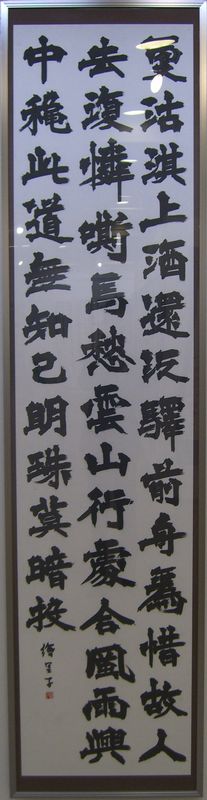 更沽淇上酒還泛驛前舟為惜故人
去復憐嘶馬愁雲山行處合風雨興
中穐此道無知己明珠莫暗投